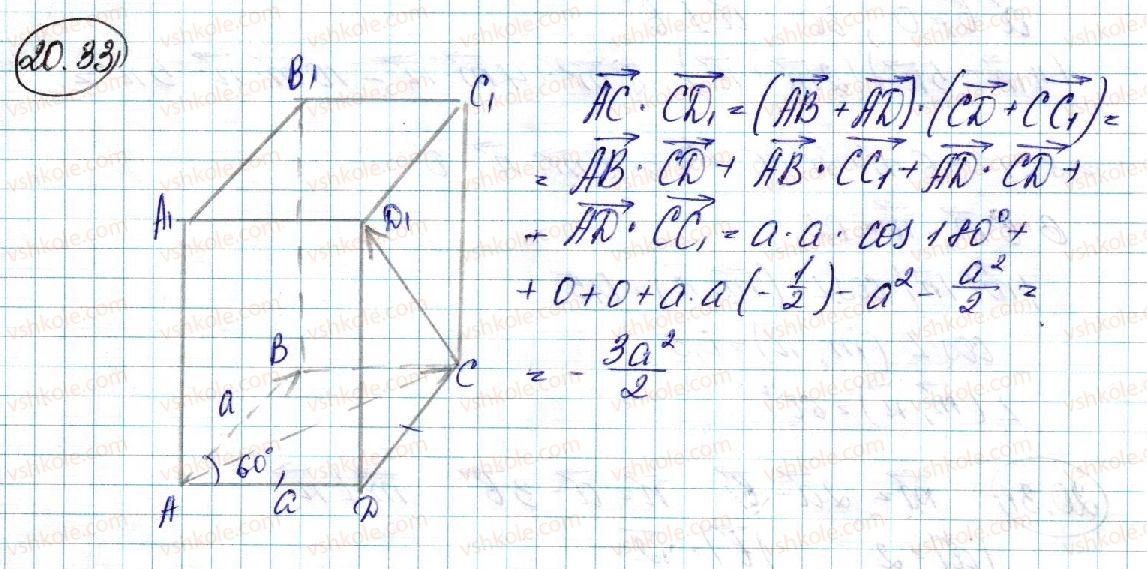 20.33
B₁
C₁
A₁
D₁
B
C
a
60°
A
a
D
AC⃗ · CD₁⃗ = (AB⃗ + AD⃗) · (CD⃗ + CC₁⃗) =
= AB⃗ · CD⃗ + AB⃗ · CC₁⃗ + AD⃗ · CD⃗ +
+ AD⃗ · CC₁⃗ = a · a · cos 180° +
+ 0 + 0 + a · a (- 1/2) - a² - a²/2 =
= - 3a²/2